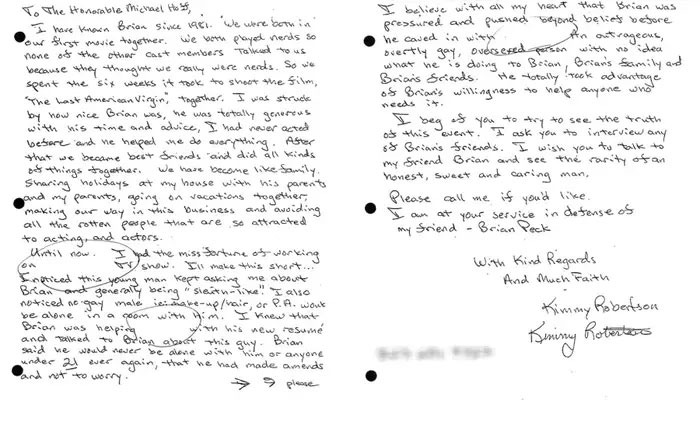 To The Honorable Michael Hoff,
I have known Brian since 1981. We were both in
our first movie together. We both played nerds so
none of the other cast members talked to us
because they thought we really were nerds. So we
spent the six weeks it took to shoot the film,
The Last American Virgin, together. I was struck
by how nice Brian was, he was totally generous
with his time and advice, I had never acted
before and he helped me do everything. After
that we became best friends and did all kinds
of things together. We have become like family.
Sharing holidays at my house with his parents
and my parents, going on vacations together,
making our way in this business and avoiding
all the rotten people that are so attracted
to acting, and actors.
Until now. I had the miss fortune of working
on TV show. I'll make this short...
I noticed this young man kept asking me about
Brian and generally being "sleuth-like". I also
noticed no gay male in make-up/hair, or P.A. would
be alone in a room with him. I knew that
Brian was helping with his new resumé
and talked to Brian about this guy. Brian
said he would never be alone with him or anyone
under 21 ever again, that he had made amends
and not to worry.
→ 9 please
I believe with all my heart that Brian was
pressured and pushed beyond belief before
he caved in with An outrageous,
overtly gay, oversexed person with no idea
what he is doing to Brian, Brian's family and
Brian's friends. He totally took advantage
of Brian's willingness to help anyone who
needs it.
I beg of you to try to see the truth
of this event. I ask you to interview any
of Brian's friends. I wish you to talk to
my friend Brian and see the rarity of an
honest, sweet and caring man.
Please call me if you'd like.
I am at your service in defense of
my friend - Brian Peck
With Kind Regards
And Much Faith
Kimmy Robertson
Kimmy Robertson